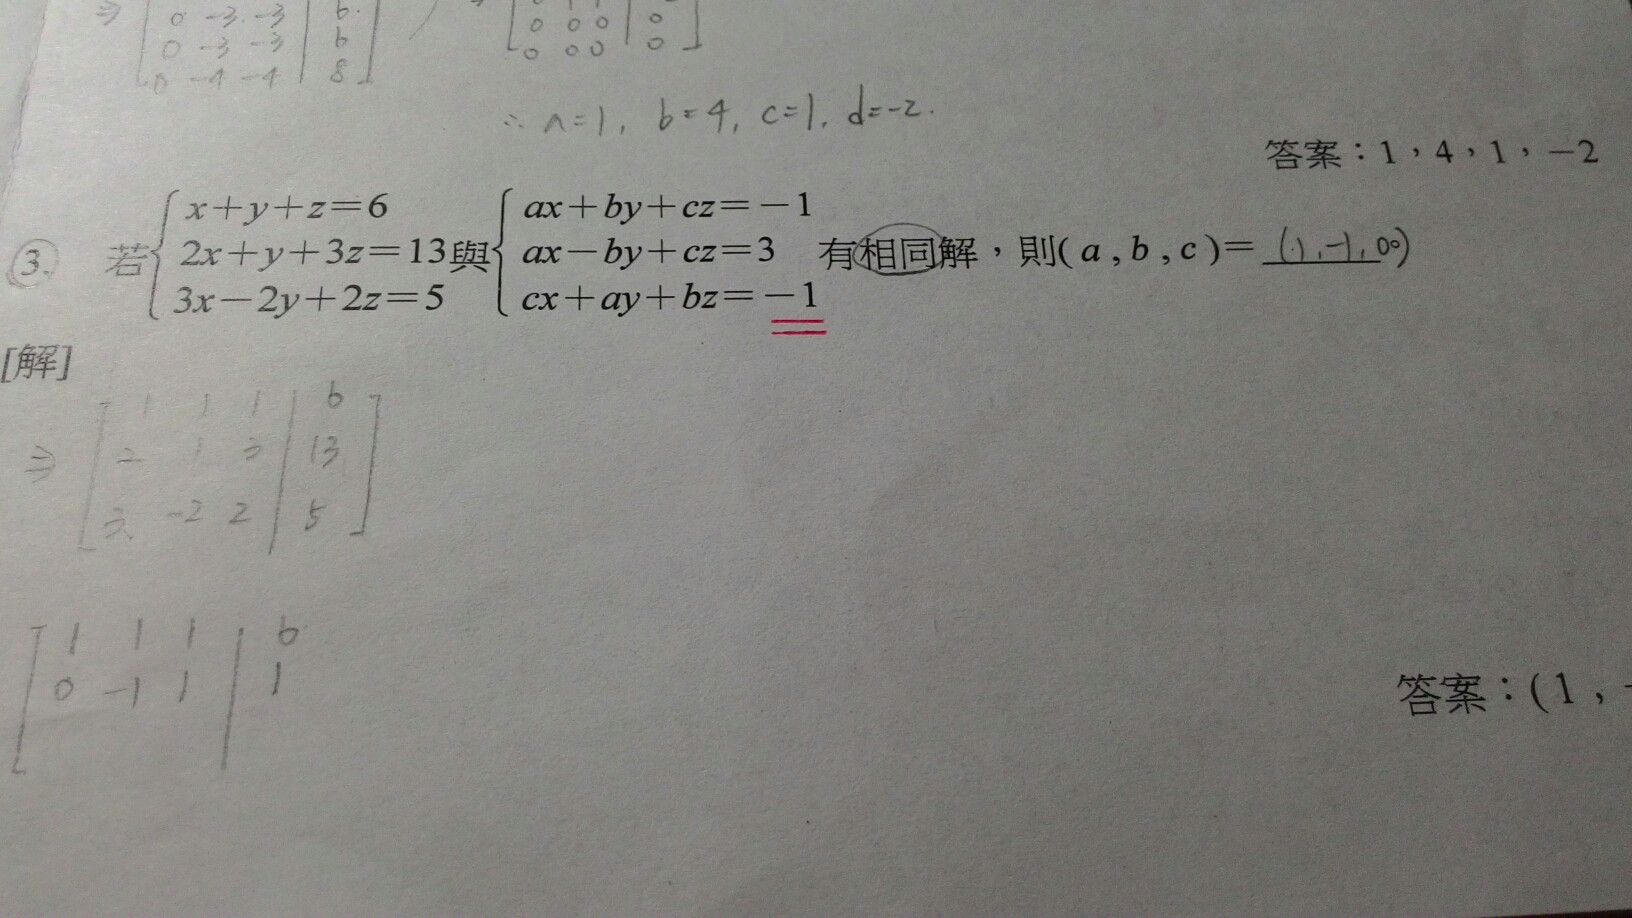 ⇒ 0 -3 -3 6
0 -3 -3 6
0 -4 -4 8
0 0 0 0
0 0 0 0
∴ a=1, b=4, c=1, d=-2.
答案：1，4，1，-2
3. 若{x+y+z=6 2x+y+3z=13 3x-2y+2z=5 與{ax+by+cz=-1 ax-by+cz=3 cx+ay+bz=-1 有相同解，則(a,b,c)=
[解]
1 1 1 6
⇒ 2 1 3 13
3 -2 2 5
1 1 1 6
0 -1 1 1
答案：(1，